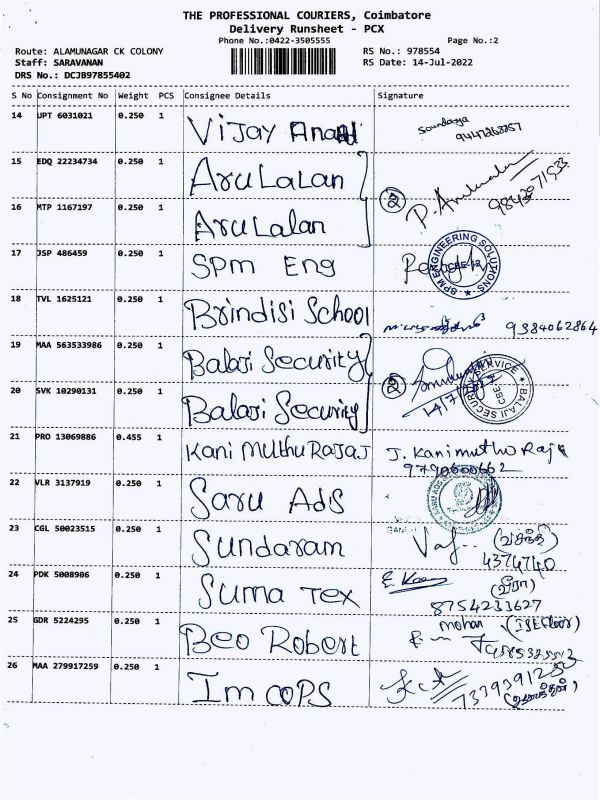 THE PROFESSIONAL COURIERS, Coimbatore
Delivery Runsheet - PCX
Phone No.:0422-3505555 Page No.:2
Route: ALAMUNAGAR CK COLONY RS No.: 978554
Staff: SARAVANAN RS Date: 14-Jul-2022
DRS No.: DCJB97855402
S No Consignment No Weight PCS Consignee Details Signature
14 UPT 6031021 0.250 1 Vijay Anand Soundarya
15 EDQ 22234734 0.250 1 ArulaLan
16 MTP 1167197 0.250 1 Arulalan ②
17 JSP 486459 0.250 1 SPM Eng SPM ENGINEERING SOLUTIONS
18 TVL 1625121 0.250 1 Brindisi School 9384062864
19 MAA 563533986 0.250 1 Balaji Security
20 SVK 10290131 0.250 1 Balaji Security ② 14/7/2022 BALAJI SECURITY SERVICE CBE
21 PRO 13069886 0.455 1 Kani Muthu Rajaj J. Kanimutho Raja
22 VLR 3137919 0.250 1 Saru Ads
23 CGL 50023515 0.250 1 Sundaram (வசந்தி)
4374740
24 PDK 5008906 0.250 1 Suma Tex (வீரா)
8754233627
25 GDR 5224295 0.250 1 Beo Robert mohan
26 MAA 279917259 0.250 1 Imcops